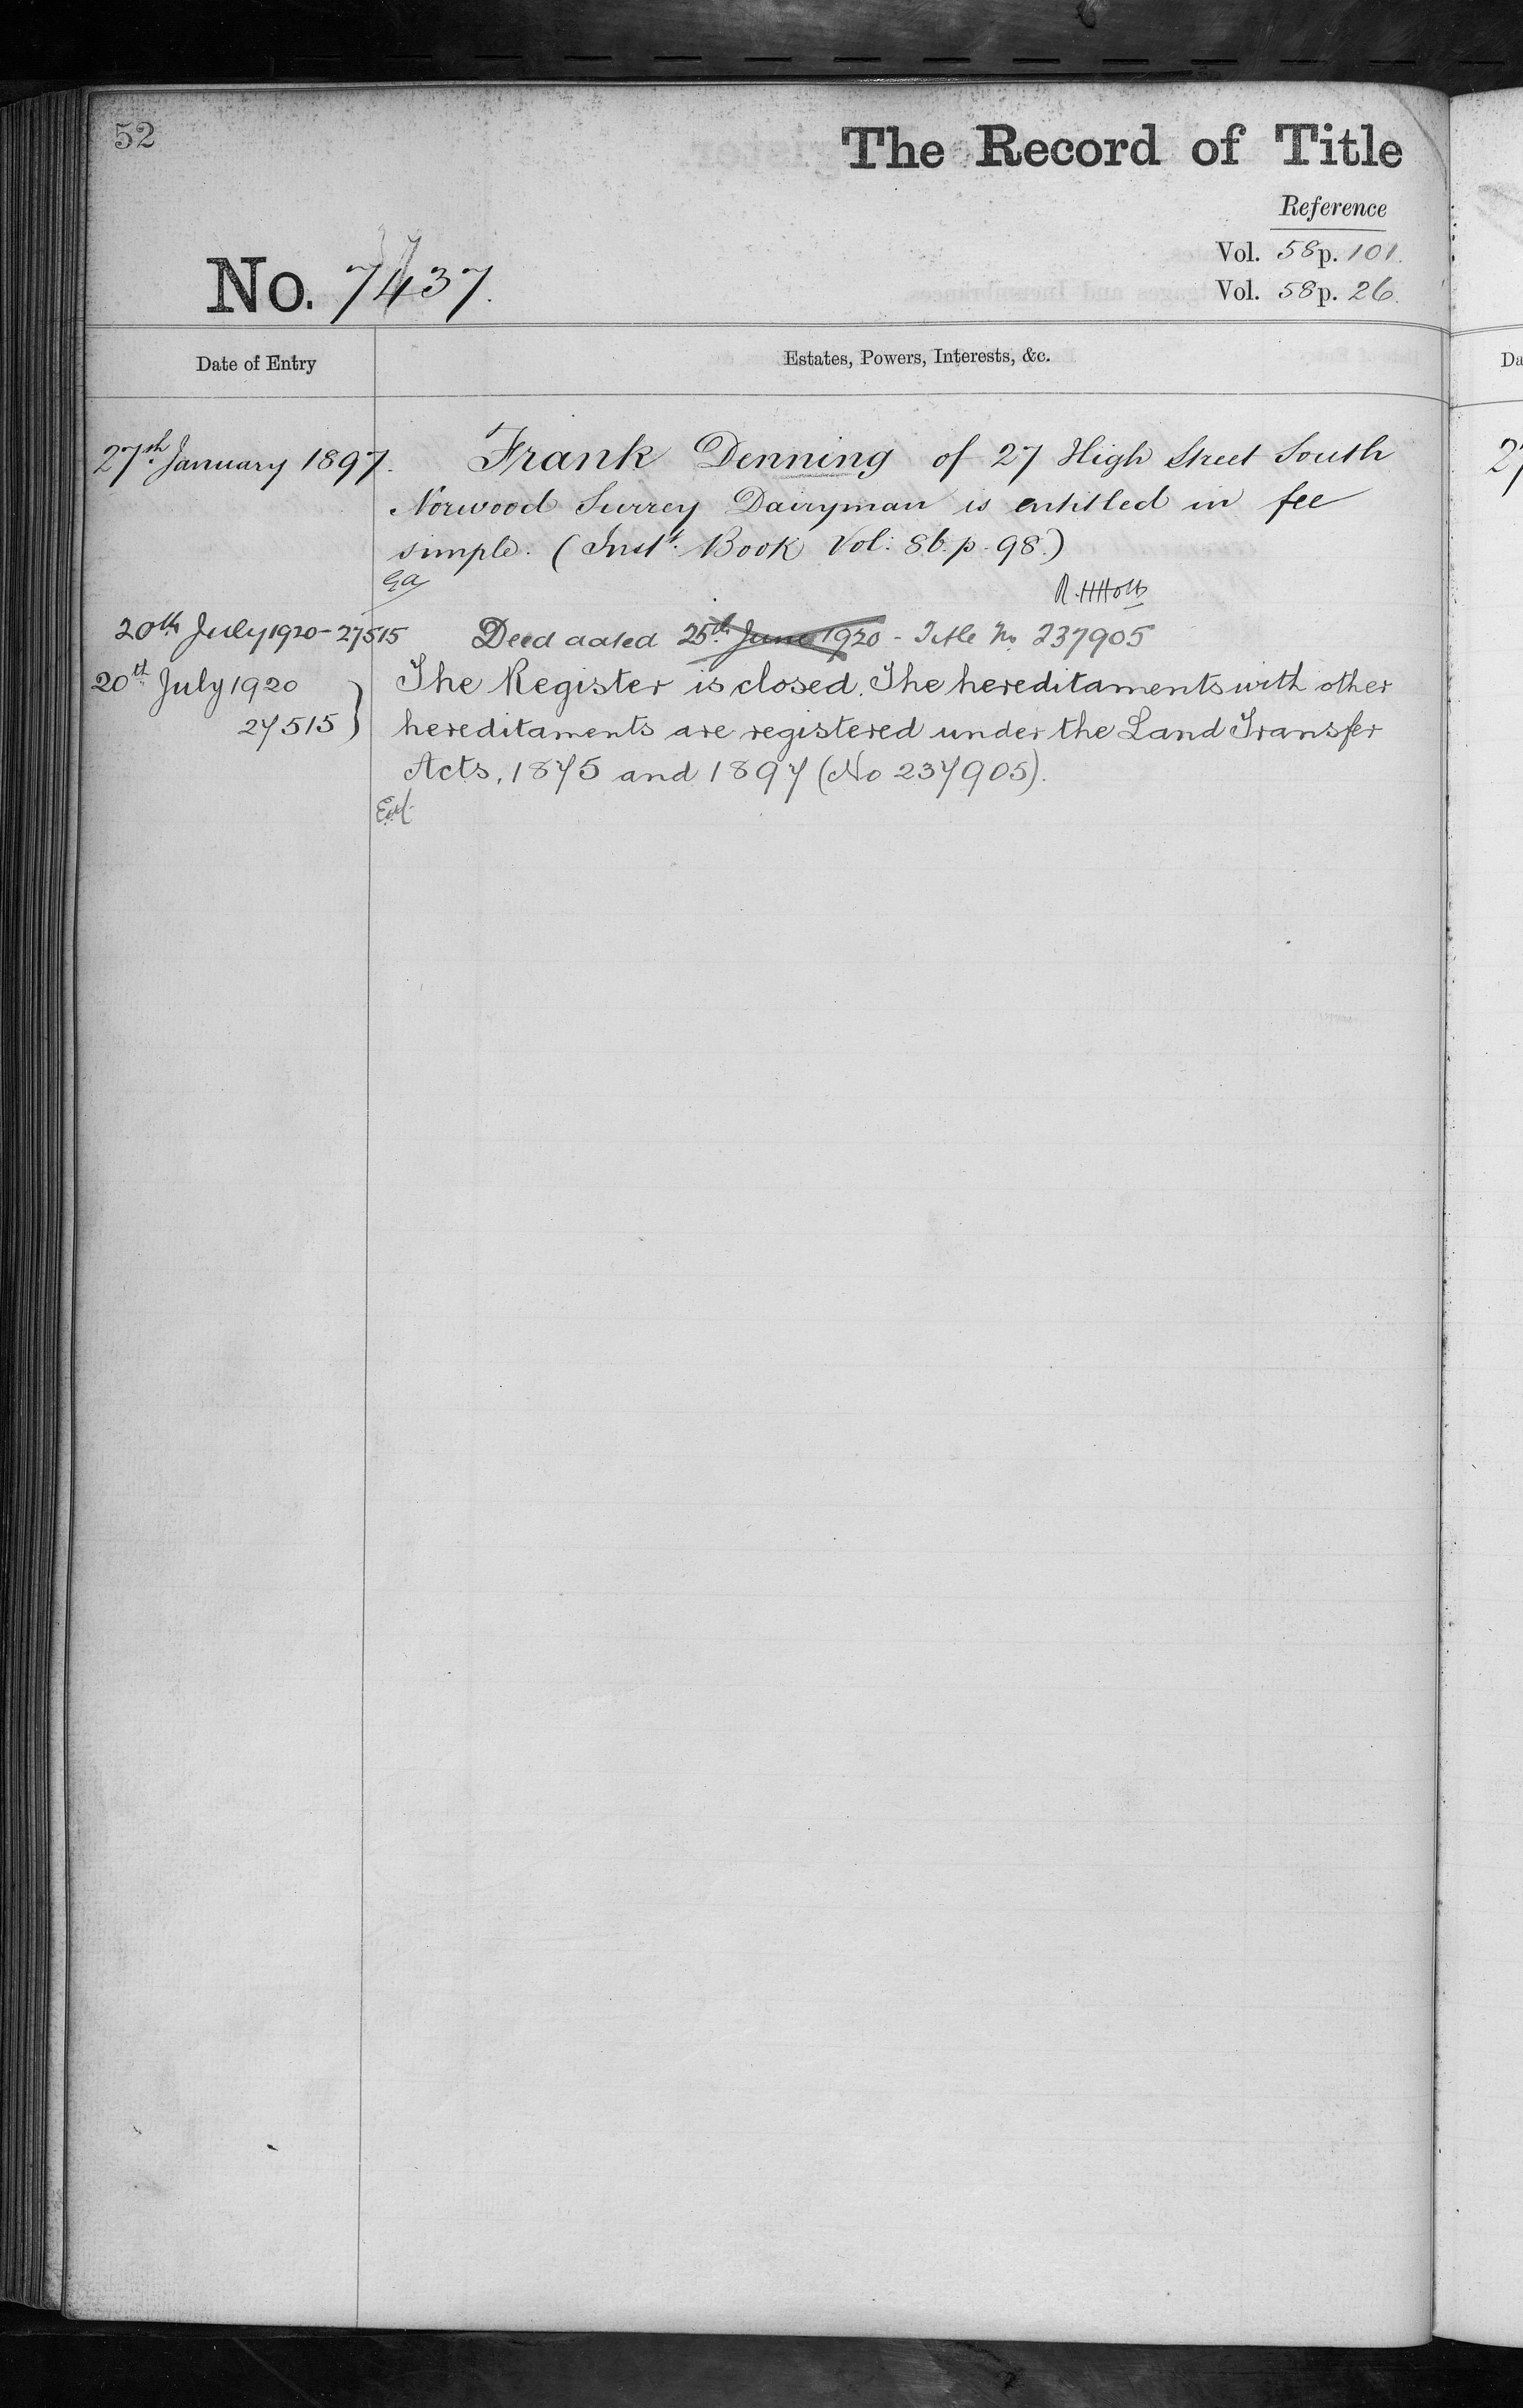 52
The Record of Title
Reference
Vol. 58 p. 101.
Vol. 58 p. 26.
No. 7437.
Date of Entry
Estates, Powers, Interests, &c.
27th January 1897.
Frank Denning of 27 High Street South
Norwood Surrey Dairyman is entitled in fee
simple. (Inst. Book Vol: 86. p. 98.)
20th July 1920 - 27515
Deed dated 25th June 1920 - Title No 237905
20th July 1920
27515 }
The Register is closed. The hereditaments with other
hereditaments are registered under the Land Transfer
Acts, 1875 and 1897 (No 237905).
Da
27